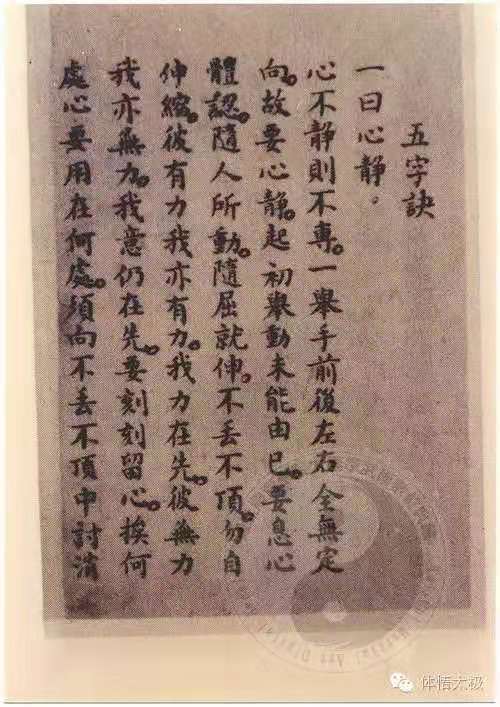 五字訣
一曰心静。
心不静則不専。一舉手前後左右全無定
向。故要心静。起初舉動未能由己。要息心
體認。隨人所動。隨屈就伸。不丢不頂。勿自
伸縮。彼有力我亦有力。我力在先。彼無力
我亦無力。我意仍在先。要刻刻留心。挨何
處心要用在何處。須向不丢不頂中討消
体悟太极